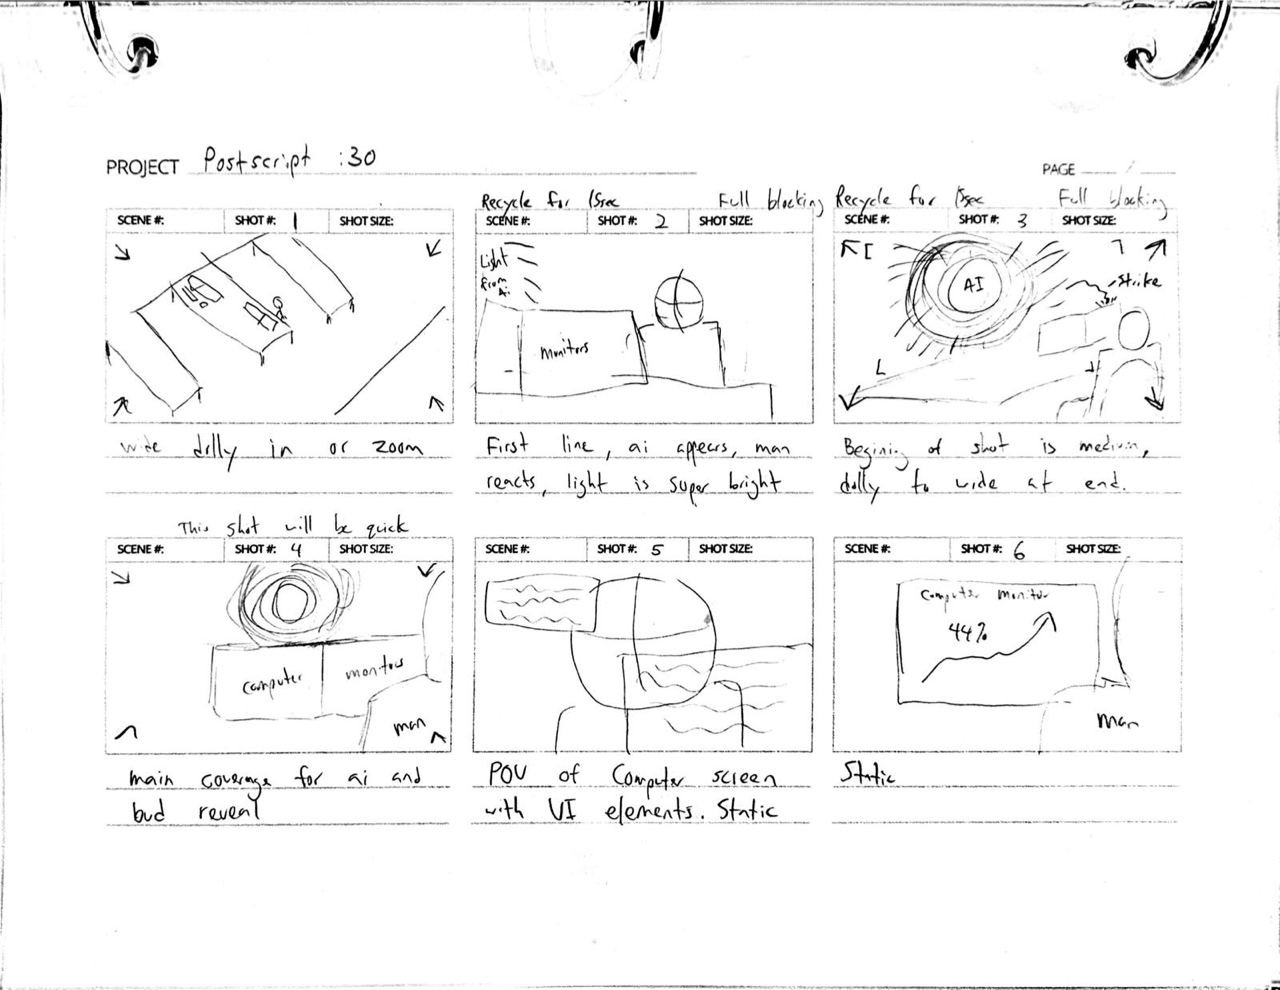 PROJECT Postscript :30
PAGE 1
Recycle for 15sec Full blocking Recycle for 15sec Full blocking
SCENE #: SHOT #: 1 SHOT SIZE:
SCENE #: SHOT #: 2 SHOT SIZE:
SCENE #: SHOT #: 3 SHOT SIZE:
Light
from
Ai
monitors
AI
Strike
wide dolly in or zoom
First line, ai appears, man
reacts, light is super bright
Begining of shot is medium,
dolly to wide at end.
This shot will be quick
SCENE #: SHOT #: 4 SHOT SIZE:
SCENE #: SHOT #: 5 SHOT SIZE:
SCENE #: SHOT #: 6 SHOT SIZE:
computer monitors
man
Computer monitor
44%
Man
main coverage for ai and
bud reveal
POV of Computer screen
with UI elements. Static
Static